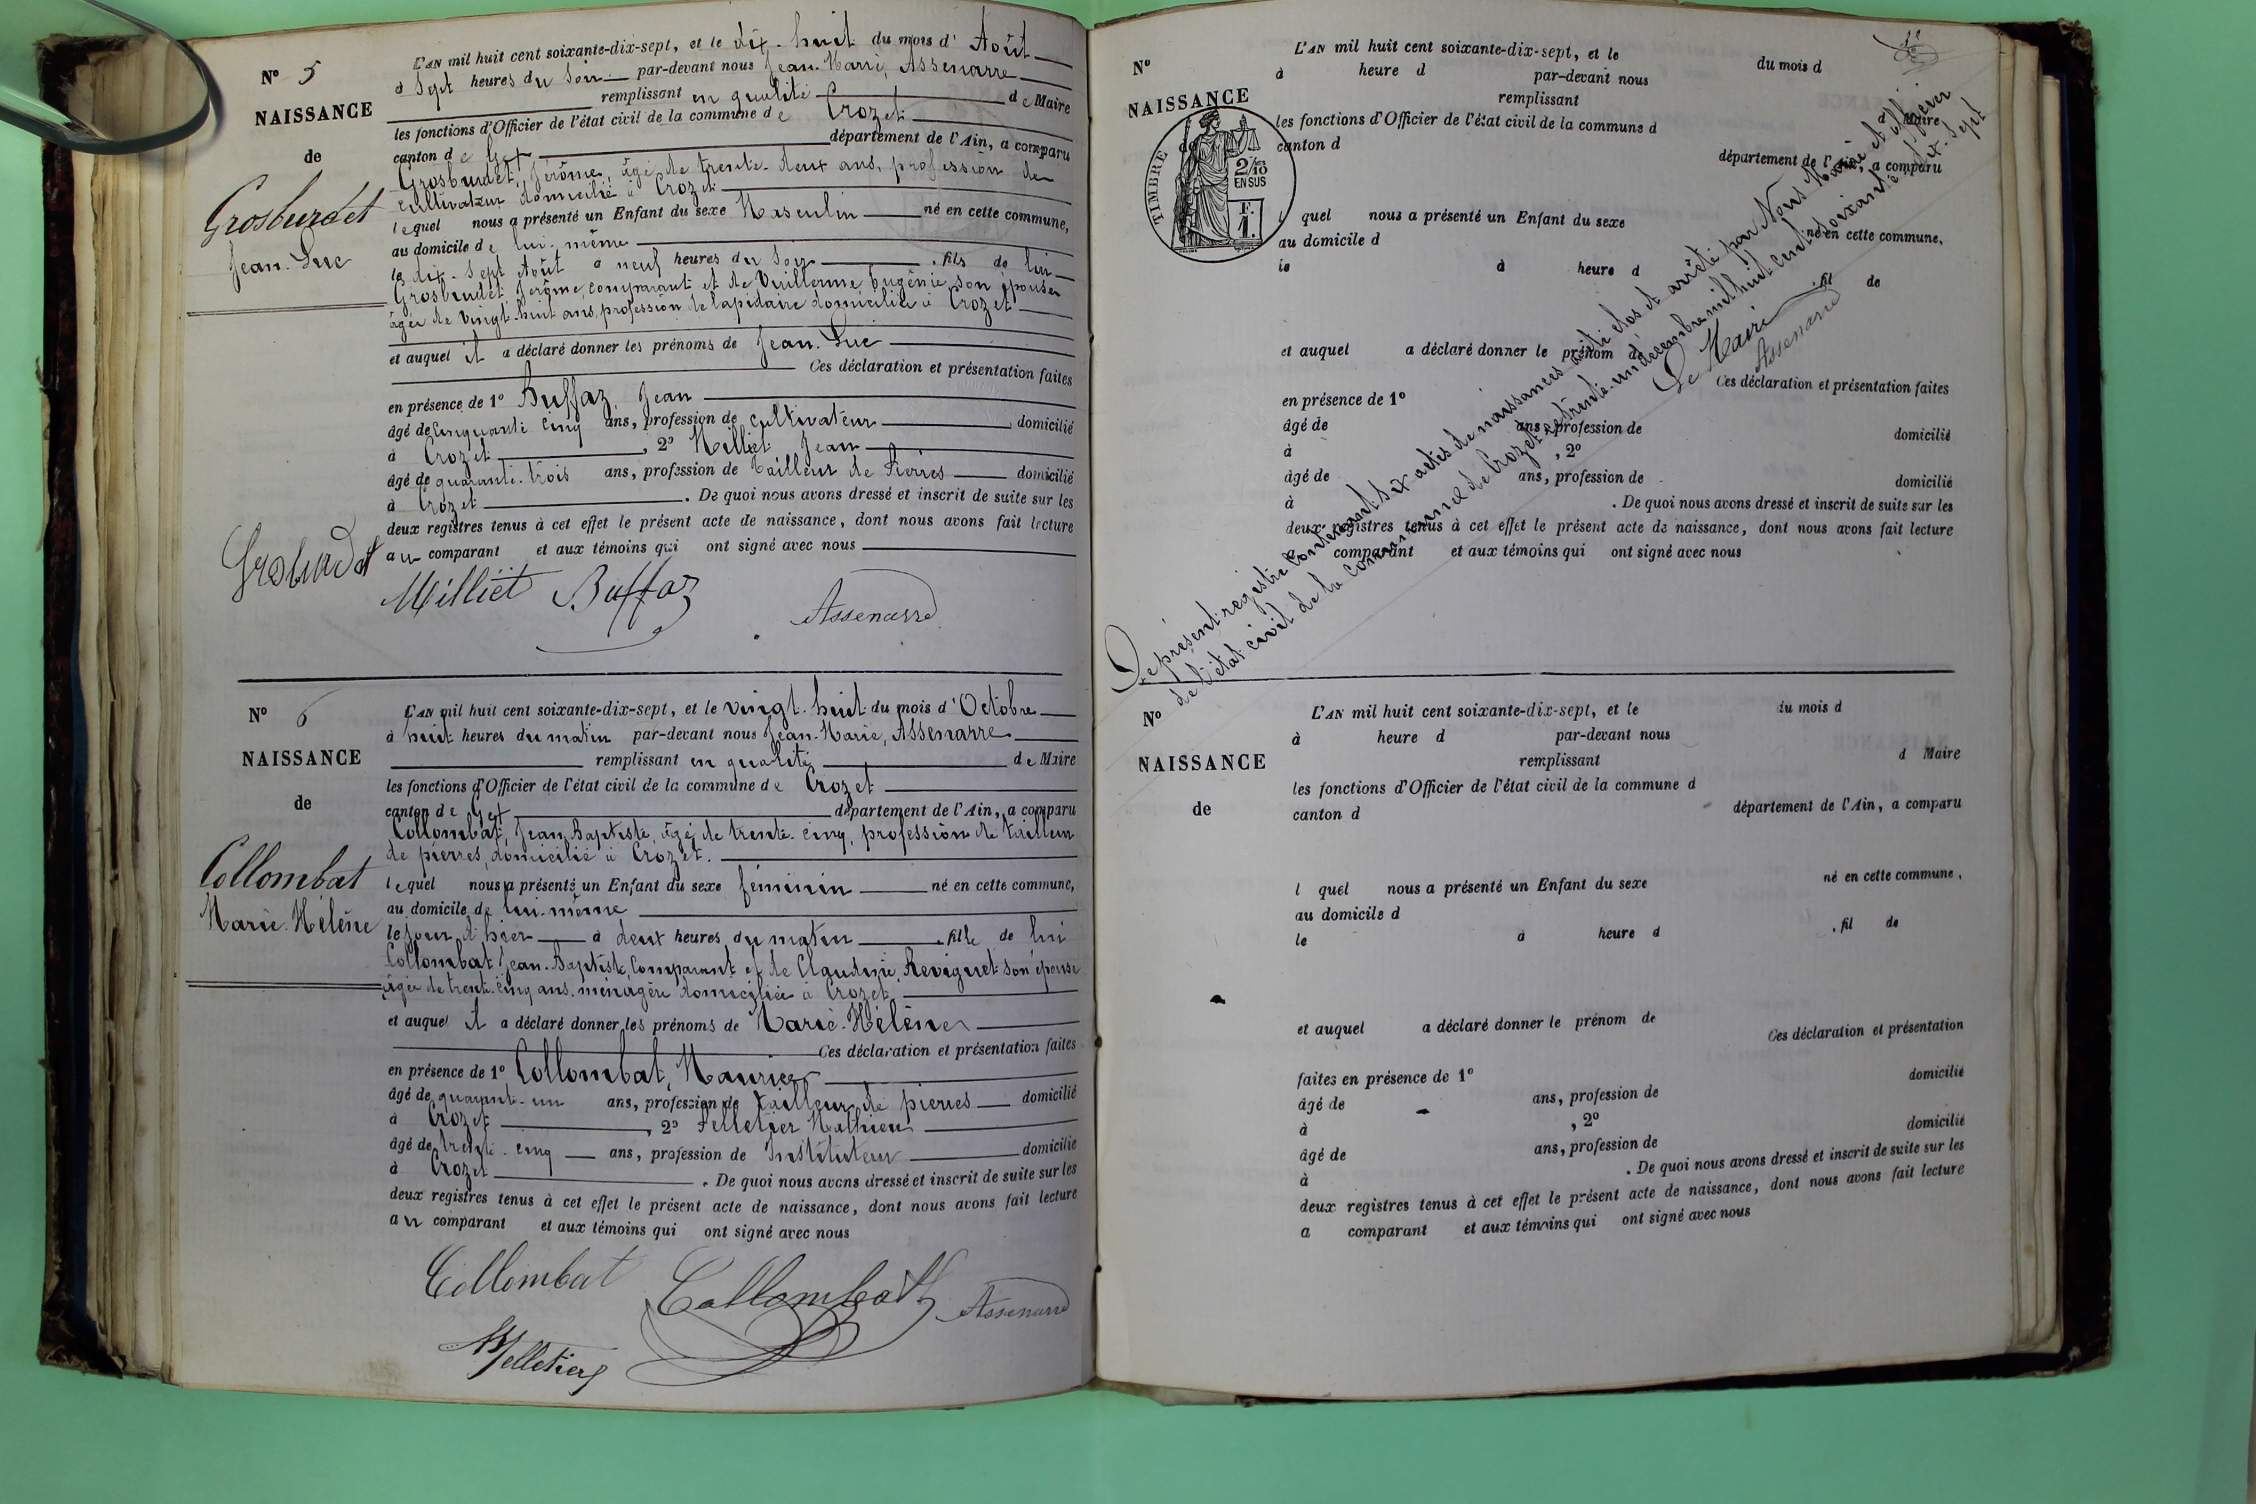 N° 5
NAISSANCE
de
Grosburdet
Jean-Luc
L'AN mil huit cent soixante-dix-sept, et le dix-huit du mois d'Août
à Sept heures du Soir par-devant nous Jean-Marie, Assenarre
remplissant en qualité de Maire
les fonctions d'Officier de l'état civil de la commune de Crozet
canton de Gex département de l'Ain, a comparu
Grosburdet, Jérôme, âgé de trente-deux ans, profession de
cultivateur domicilié à Crozet
lequel nous a présenté un Enfant du sexe Masculin né en cette commune,
au domicile de lui-même
le dix-sept Août à neuf heures du Soir, fils de lui
Grosburdet, Jérôme, comparant et de Vuillerme Eugénie, son épouse
âgée de vingt-huit ans, profession de lapidaire domiciliée à Crozet
et auquel il a déclaré donner les prénoms de Jean-Luc
Ces déclaration et présentation faites
en présence de 1° Buffaz, Jean
âgé de cinquante cinq ans, profession de cultivateur domicilié
à Crozet, 2° Milliet Jean
âgé de quarante-trois ans, profession de tailleur de Pierres domicilié
à Crozet. De quoi nous avons dressé et inscrit de suite sur les
deux registres tenus à cet effet le présent acte de naissance, dont nous avons fait lecture
au comparant et aux témoins qui ont signé avec nous
Grosburdet
Milliet Buffaz
Assenarre
N° 6
NAISSANCE
de
Collombat
Marie-Hélène
L'AN mil huit cent soixante-dix-sept, et le vingt-huit du mois d'Octobre
à huit heures du matin par-devant nous Jean-Marie, Assenarre
remplissant en qualité de Maire
les fonctions d'Officier de l'état civil de la commune de Crozet
canton de Gex département de l'Ain, a comparu
Collombat, Jean Baptiste, âgé de trente-cinq, profession de tailleur
de pierres, domicilié à Crozet.
lequel nous a présenté un Enfant du sexe féminin né en cette commune,
au domicile de lui-même
le jour d'hier à deux heures du matin, fille de lui
Collombat Jean-Baptiste, Comparant et de Claudine Reviguet son épouse
âgée de trente-cinq ans, ménagère domiciliée à Crozet.
et auquel il a déclaré donner les prénoms de Marie-Hélène
Ces déclaration et présentation faites
en présence de 1° Collombat, Maurice
âgé de quarante-un ans, profession de tailleur de pierres domicilié
à Crozet, 2° Pelletier Mathieu
âgé de trente-cinq ans, profession de Instituteur domicilié
à Crozet. De quoi nous avons dressé et inscrit de suite sur les
deux registres tenus à cet effet le présent acte de naissance, dont nous avons fait lecture
au comparant et aux témoins qui ont signé avec nous
Collombat Collombat Assenarre
Pelletier
N°
NAISSANCE
de
TIMBRE
2/10
EN SUS
F.
1.
L'AN mil huit cent soixante-dix-sept, et le du mois d
à heure d par-devant nous
remplissant Maire
les fonctions d'Officier de l'état civil de la commune d
canton d département de l'Ain, a comparu
l quel nous a présenté un Enfant du sexe né en cette commune,
au domicile d
le à heure d , fil de
et auquel a déclaré donner le prénom de
Ces déclaration et présentation faites
en présence de 1°
âgé de ans, profession de domicilié
à , 2°
âgé de ans, profession de domicilié
à . De quoi nous avons dressé et inscrit de suite sur les
deux registres tenus à cet effet le présent acte de naissance, dont nous avons fait lecture
a comparant et aux témoins qui ont signé avec nous
Le présent registre Contenant six actes de naissances a été clos et arrêté par Nous Maire et officier
de l'état civil de la Commune de Crozet le trente-un décembre mil huit cent soixante dix-sept
Le Maire
Assenarre
N°
NAISSANCE
de
L'AN mil huit cent soixante-dix-sept, et le du mois d
à heure d par-devant nous
remplissant d Maire
les fonctions d'Officier de l'état civil de la commune d
canton d département de l'Ain, a comparu
l quel nous a présenté un Enfant du sexe né en cette commune,
au domicile d
le à heure d , fil de
et auquel a déclaré donner le prénom de
Ces déclaration et présentation
faites en présence de 1°
âgé de ans, profession de domicilié
à , 2°
âgé de ans, profession de domicilié
à . De quoi nous avons dressé et inscrit de suite sur les
deux registres tenus à cet effet le présent acte de naissance, dont nous avons fait lecture
a comparant et aux témoins qui ont signé avec nous